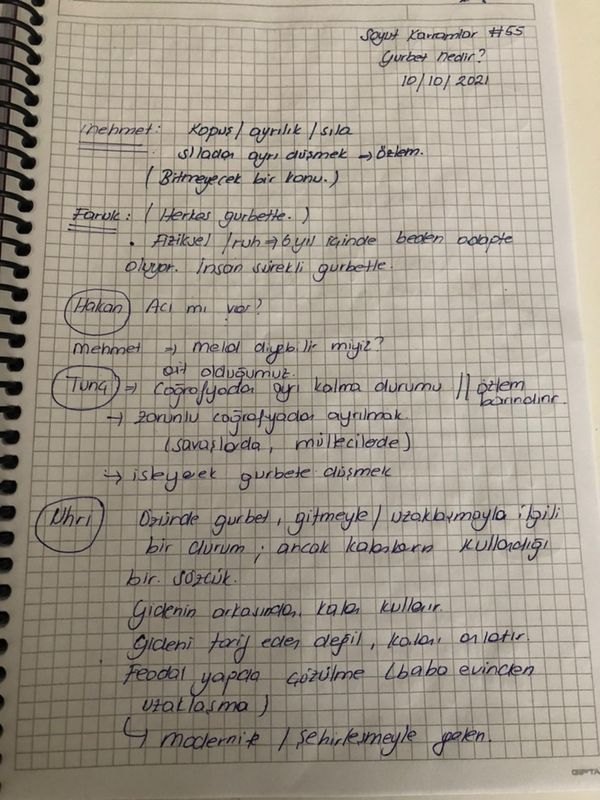 Soyut Kavramlar #55
Gurbet nedir?
10/10/2021
Mehmet: Kopuş / ayrılık / sıla
sıladan ayrı düşmek → özlem.
(Bitmeyecek bir konu.)
Faruk: (Herkes gurbette.)
• Fiziksel / ruh → 6 yıl içinde beden adapte
oluyor. İnsan sürekli gurbette.
Hakan Acı mı var?
Mehmet → melal diyebilir miyiz?
ait olduğumuz
Tunç → Coğrafyadan ayrı kalma durumu // özlem
barındırır.
→ zorunlu coğrafyadan ayrılmak.
(savaşlarda, mültecilerde)
→ isteyerek gurbete düşmek
Nhri Özünde gurbet, gitmeyle / uzaklaşmayla ilgili
bir durum; ancak kalanların kullandığı
bir sözcük.
Gidenin arkasından kalan kullanır.
Gideni tarif eden değil, kalanı anlatır.
Feodal yapıda çözülme (baba evinden
uzaklaşma)
↳ modernite / şehirleşmeyle gelen.
GIPTA